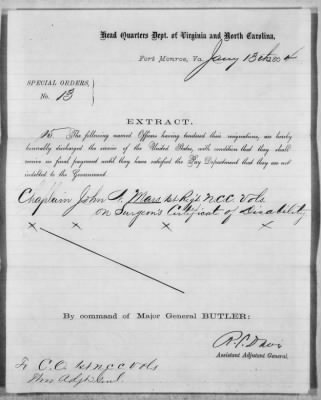 Head Quarters Dept. of Virginia and North Carolina,
Fort Monroe, Va. Jany 13th 1864
SPECIAL ORDERS,
No. 13
EXTRACT.
The following named Officers having tendered their resignations, are hereby
honorably discharged the service of the United States, with condition that they shall
receive no final payment until they have satisfied the Pay Department that they are not
indebted to the Government.
Chaplain John N. Mars 1st Regt N.C.C. Vols.
on Surgeon's Certificate of Disability
x x x
By command of Major General BUTLER:
R. S. Davis
Assistant Adjutant General.
To C.O. 1st N.C.C. Vols
Thro Adjt Genl.